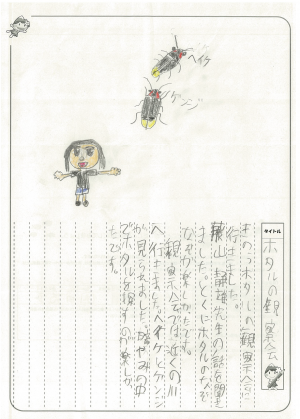 ヘイケ
ゲンジ
タイトル
ホタルの観察会
きのうホタルの観察会に
行きました。
藤山 先生の話を聞き
ました。とくにホタルのなぞ
が楽しかったです。
観察会では近くの川
へ行きました。ヘイケとゲンジ
が見られました。暗やみの中
でホタルを探すのが楽しか
たです。